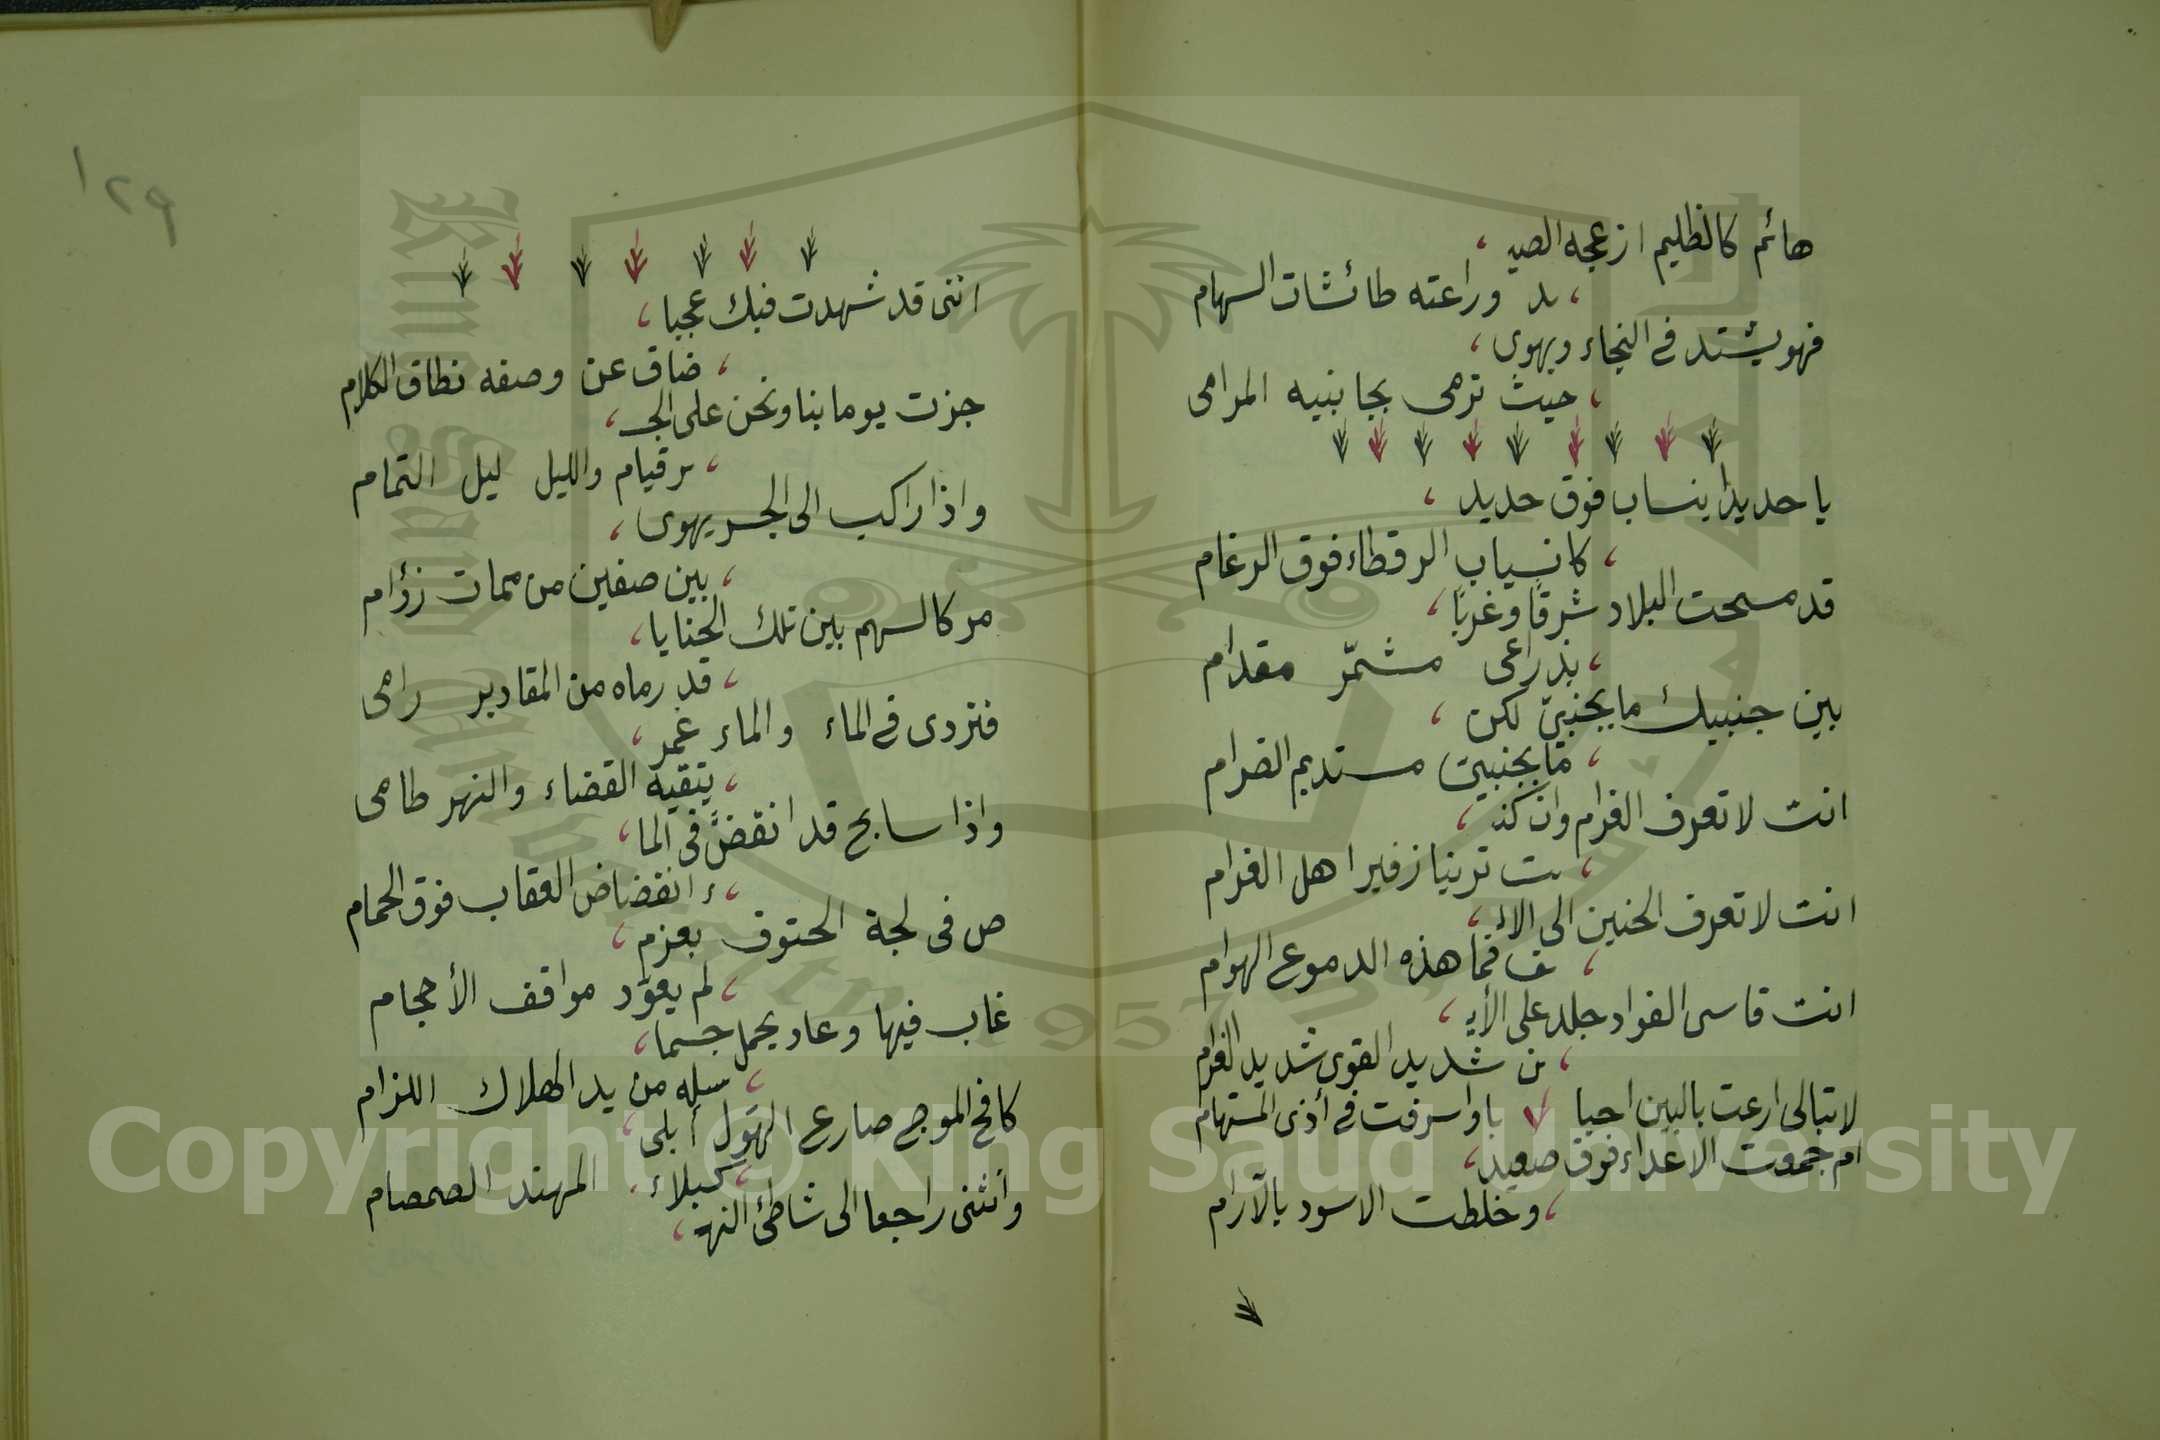 هائم كالظليم ازعجه الصيـ ،
، ـد وراعته طائشات السهام
فهو يشتد في النجاء ويهوى ،
، حيث ترمى بجانبيه المرامى
يا حديدا ينساب فوق حديد ،
، كانسياب الرقطاء فوق الرغام
قد مسحت البلاد شرقا وغربا ،
، بذراعى مشمّر مقدام
بين جنبيك ما بجنبىّ لكن ،
، ما بجنبىّ مستديم الضرام
انت لا تعرف الغرام وان كنـ ،
، ـت ترينا زفير اهل الغرام
انت لا تعرف الحنين الى الالـ ،
، ـف فما هذه الدموع الهوام
انت قاسى الفواد جلد على الأيـ ،
، ـن شديد القوى شديد الغرام
لا تبالى ارعت بالبين احبا ، با واسرفت في أذى المستهام
ام جمعت الاعداء فوق صعيد ،
، وخلطت الاسود بالآرام
١٢٩
اننى قد شهدت فيك عجيبا ،
، ضاق عن وصفه نطاق الكلام
جزت يوما بنا ونحن على الجسـ ،
، ـر قيام والليل ليل التمام
واذا راكب الى الجسر يهوى ،
، بين صفين من ممات زؤام
مر كالسهم بين تلك الحنايا ،
، قد رماه من المقادير رامى
فتردى في الماء والماء غمر ،
، يتقيه القضاء والنهر طامى
واذا سابح قد انقضّ فى الما ،
، ء انقضاض العقاب فوق الحمام
ص فى لجة الحتوف بعزم ،
، لم يعوّد مواقف الأحجام
غاب فيها وعاد يحمل جسما ،
، سله من يد الهلاك اللزام
كافح الموج صارع الهول أبلى ،
، كبلاء المهند الصمصام
وانثنى راجعا الى شاطئ النهـ ،
Copyright © King Saud University
King Saud University
1957